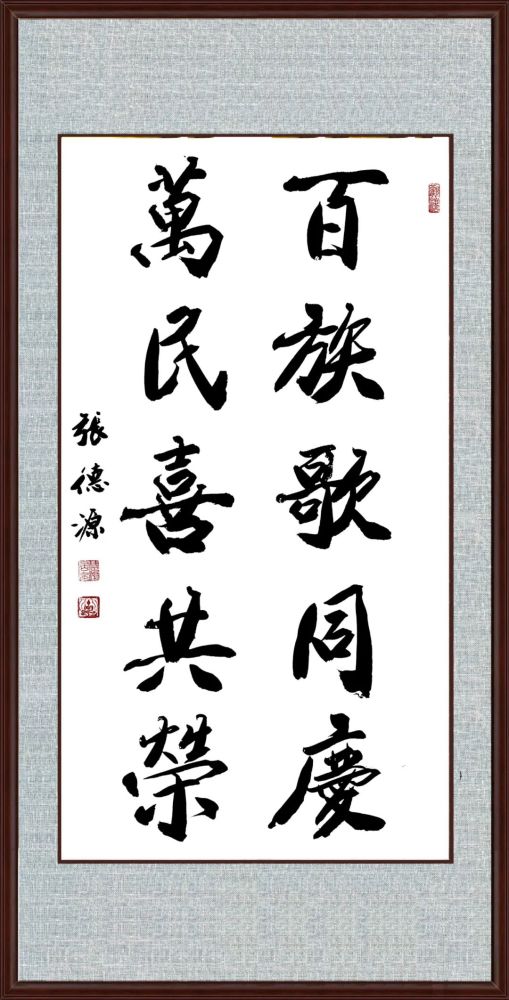 百族歌同慶
萬民喜共榮
張德源